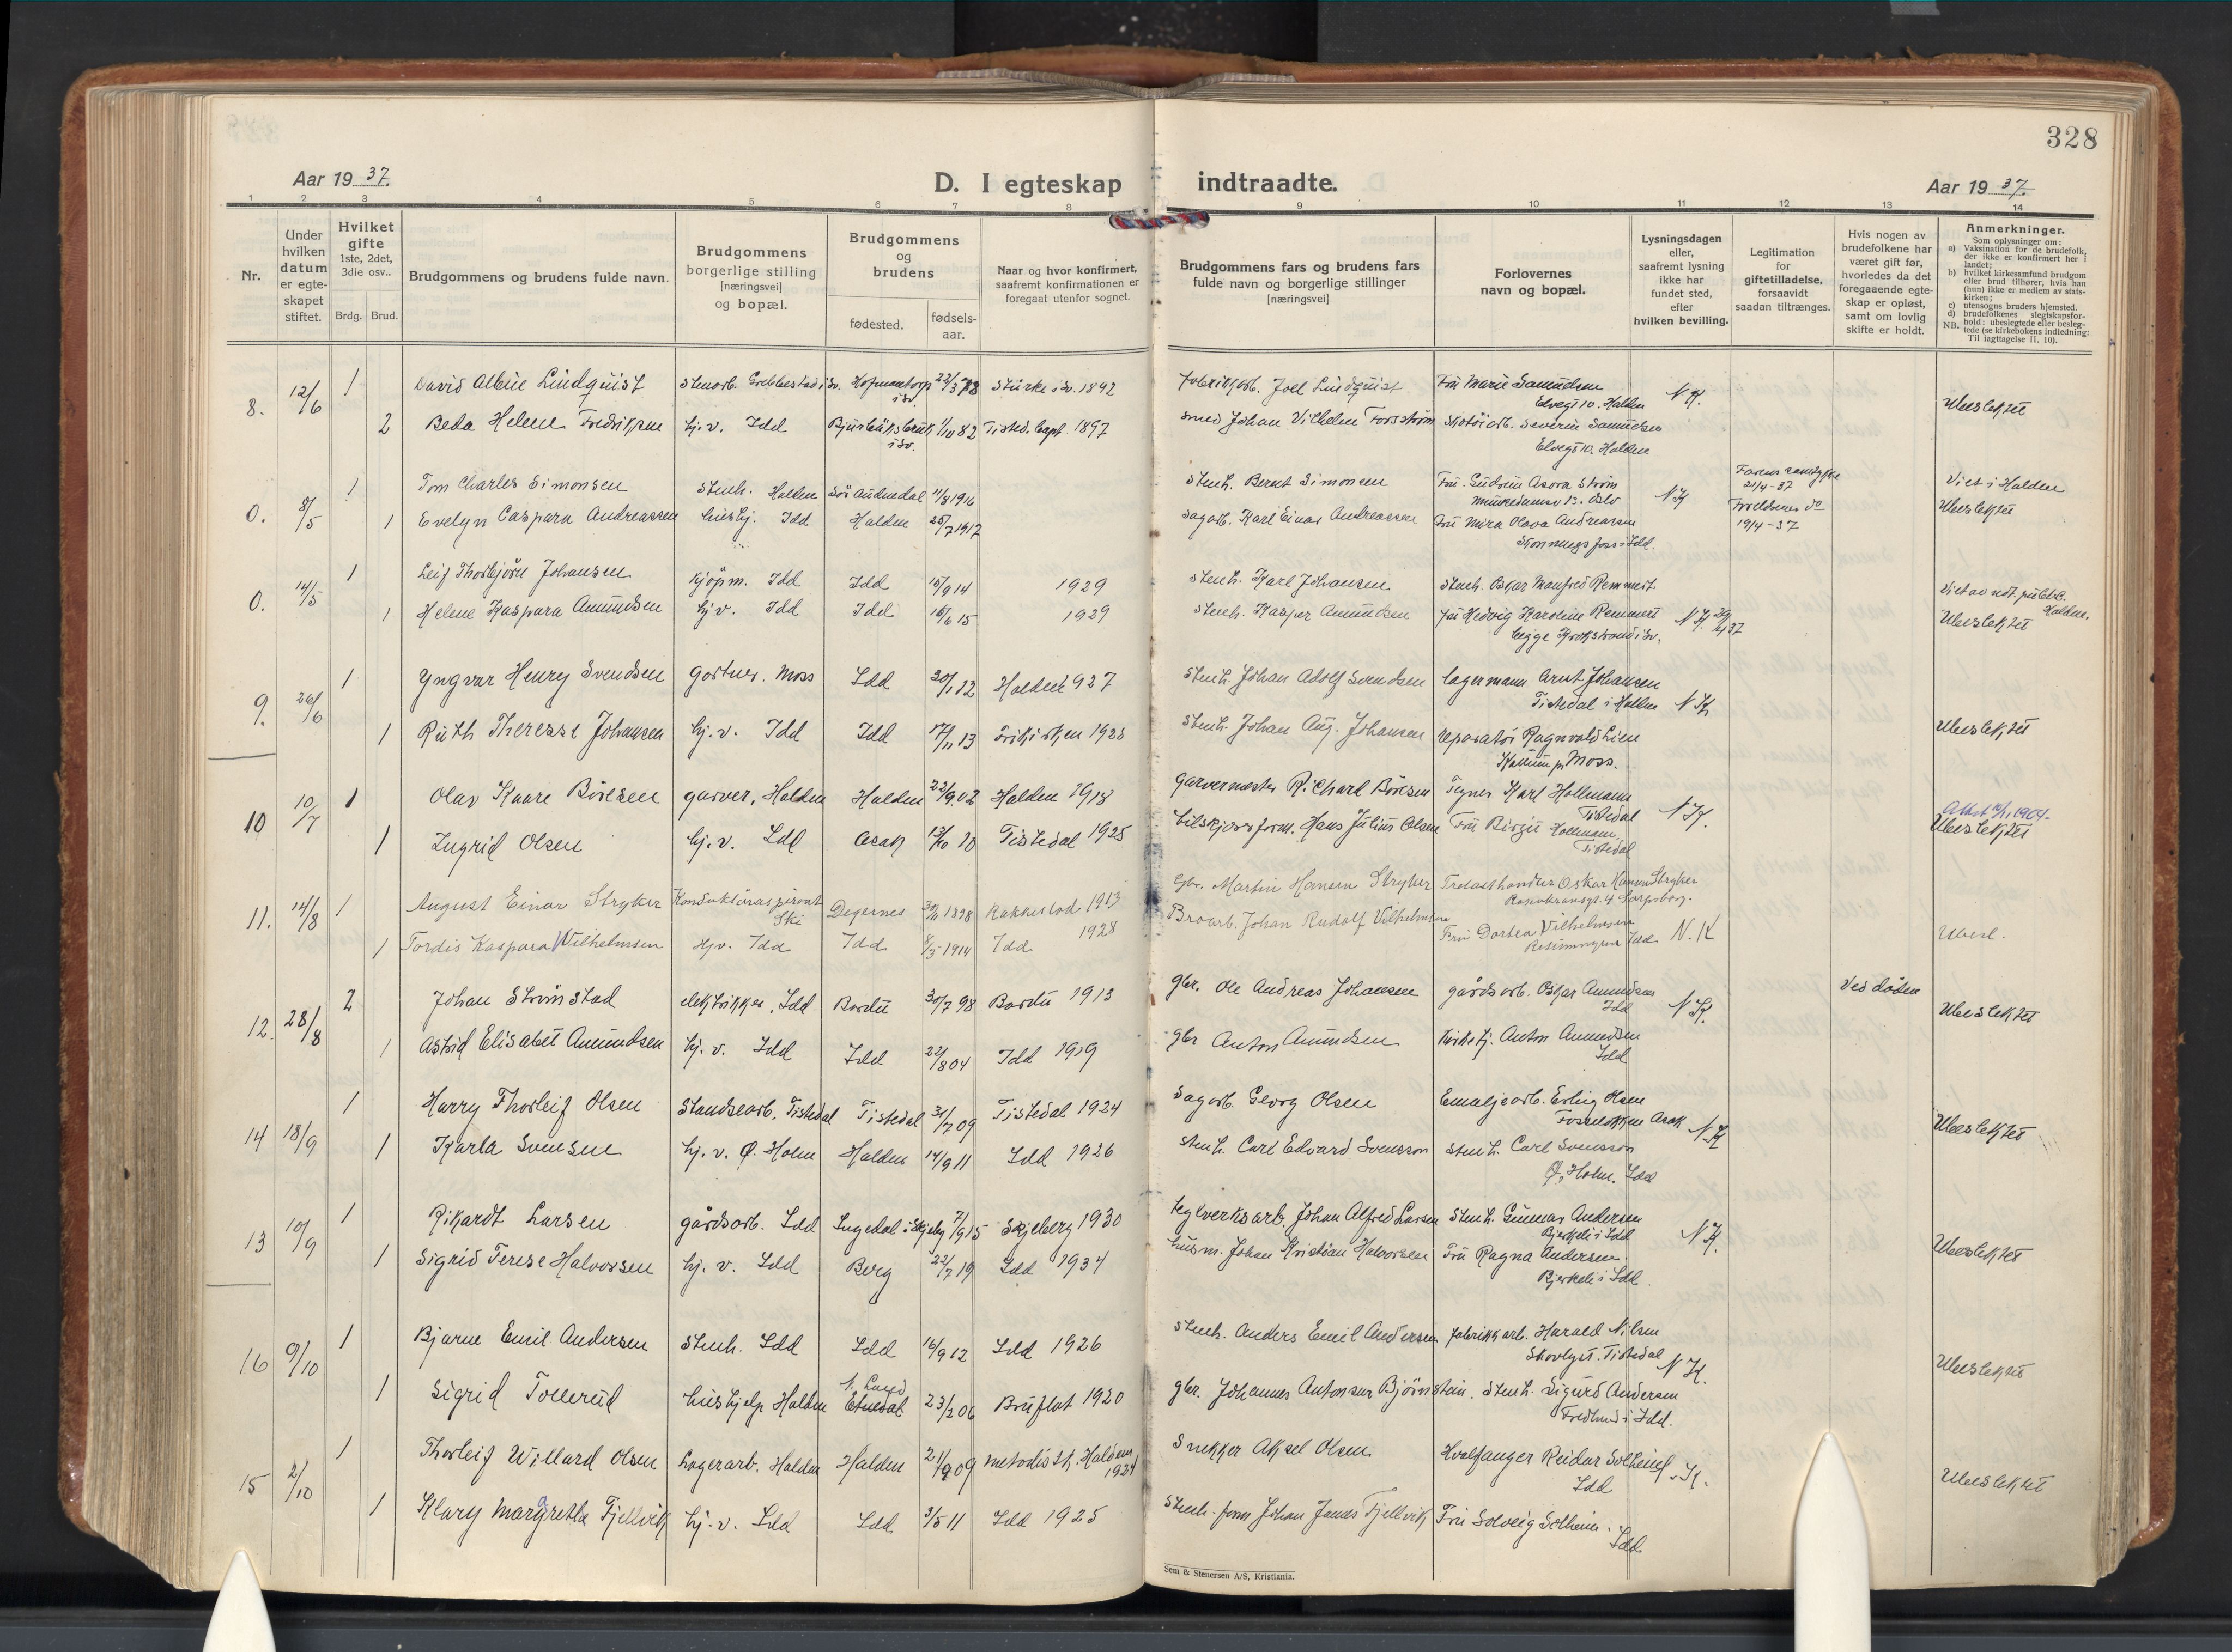 328
Aar 19 37.
D. I egteskap indtraadte.
Aar 19 37.
1 2 3 4 5 6 7 8 9 10 11 12 13 14
Nr.
Under hvilken datum er egte-skapet stiftet.
Hvilket gifte 1ste, 2det, 3die osv..
Brdg. Brud.
Brudgommens og brudens fulde navn.
Brudgommens borgerlige stilling [næringsvei] og bopæl.
Brudgommens og brudens
fødested.
fødsels-aar.
Naar og hvor konfirmert, saafremt konfirmationen er foregaat utenfor sognet.
Brudgommens fars og brudens fars fulde navn og borgerlige stillinger [næringsvei]
Forlovernes navn og bopæl.
Lysningsdagen eller, saafremt lysning ikke har fundet sted, efter hvilken bevilling.
Legitimation for giftetilladelse, forsaavidt saadan tiltrænges.
Hvis nogen av brudefolkene har været gift før, hvorledes da det foregaaende egte-skap er opløst, samt om lovlig skifte er holdt.
Anmerkninger.
Som oplysninger om:
a) Vaksination for de brudefolk, der ikke er konfirmert her i landet;
b) hvilket kirkesamfund brudgom eller brud tilhører, hvis han (hun) ikke er medlem av stats-kirken;
c) utensogns bruders hjemsted.
d) brudefolkenes slegtskapsfor-hold: ubeslegtede eller besleg-tede (se kirkebokens indledning:
NB. Til iagttagelse II. 10).
8. 12/6 1 David Albin Lindquist Stenarb. Grebbestad i Sv. Hofmantorp i Sv. 1892 fabrikkarb. Joel Lindquist Fru Marie Samuelsen Elvegt 10. Halden N.K.
2 Beda Helene Fredriksen hj.v. Idd i Sv. 1/10 82 Tisted. kapt. 1897 smed Johan Vilhelm Forsström Skotöiarb. Severin Samuelsen Elvegt 10. Halden Ubeslektet
0. 8/5 1 Tom Charles Simonsen Stenh. Halden Sör Audnedal 11/8 1916 Stenh. Bernt Simonsen Fru Gudrun Asora Ström Oslo N K Farens samtykke 21/4-37 Viet i Halden
1 Evelyn Caspara Andreassen hushj. Idd Halden 25/7 1917 Sagarb. Karl Einar Andreassen Fru Mira Olava Andreassen i Idd. Foreldrenes do 19/4-37 Ubeslektet
0. 14/5 1 Leif Thorbjörn Johansen Kjöpm. Idd Idd 15/9 14 1929 Stenh. Karl Johansen Stenh. Oskar Manfred Remmert Viet av not. publ. i Halden.
1 Helene Kaspara Amundsen hj v. Idd Idd 16/6 15 1929 Stenh. Kasper Amundsen fru Hedvig Karoline Remmert begge Krokstrand i Sv. N K. Ubeslektet
9. 26/6 1 Yngvar Henry Svendsen Gartner. Moss Idd 20/1 12 Halden 1927 Stenh. Johan Adolf Svendsen Lagermann Arnt Johansen Tistedal i Halden N K
1 Ruth Therese Johansen hj.v. Idd Idd 17/11 13 Frikirken 1928 Stenh. Johan Aug. Johansen reparatör Ragnvald Lien Moss. Ubeslektet
10 10/7 1 Olav Kaare Börresen garver, Halden Halden 22/9 02 Halden 1918 Garvermester Richard Börresen Tegner Karl Hollmann Tistedal N.K.
1 Ingrid Olsen hj.v. Idd Asak 13/10 10 Tistedal 1925 Hans Julius Olsen Fru Birgit Hollmann Tistedal Ubeslektet
11. 14/8 1 August Einar Stryker Konduktöraspirant Ski Degernes 1898 Rakkestad 1913 Gbr. Martin Hansen Stryker Trelasthandler Oskar Hansen Stryker Sarpsborg.
1 Tordis Kaspara Wilhelmsen Hjv. Idd Idd 8/5 1914 Idd 1928 Broarb. Johan Rudolf Vilhelmsen Fru Dortea Vilhelmsen Idd N.K Ubesl.
12. 28/8 2 Johan Strömstad elektrikker, Idd Bardu 30/7 98 Bardu 1913 gbr. Ole Andreas Johansen gårdsarb. Oskar Amundsen Idd N K. Ved döden Ubeslektet
1 Astrid Elisabet Amundsen hj.v. Idd Idd 22/8 04 Idd 1919 gbr Anton Amundsen kirketj. Anton Amundsen Idd
14 18/9 1 Harry Thorleif Olsen Standsearb. Tistedal Tistedal 31/7 09 Tistedal 1924 Sagarb. Georg Olsen Emaljearb. Erling Olsen Asak N.K Ubeslektet
1 Karla Svensen hj.v. Ø. Holm Halden 14/9 11 Idd 1926 Stenh. Carl Edvard Svensson Stenh. Carl Svensson Ø. Holm. Idd
13 10/9 1 Rikardt Larsen gårdsarb. Idd Ingedal i Skjeberg 7/9 15 Skjeberg 1930 teglverksarb. Johan Alfred Larsen Stenh. Gunnar Andersen Bjerkeli i Idd N K.
1 Sigrid Terese Halvorsen hj.v. Idd Berg 22/7 19 Idd 1934 husm. Johan Kristian Halvorsen Fru Ragna Andersen. Bjerkeli i Idd. Ubeslektet
16 9/10 1 Bjarne Emil Andersen Stenh. Idd Idd 16/9 12 Idd 1926 Stenh. Anders Emil Andersen fabrikkarb. Harald Nilsen Tistedal N K. Ubeslektet
1 Sigrid Tollerud hushjelp Halden N. Land Etnedal 23/2 06 Bruflat 1920 gbr. Johannes Antonsen Björnstein. Stenh. Sigurd Andersen Fredlund i Idd.
15 2/10 1 Thorleif Willard Olsen Lagerarb. Halden Halden 21/9 09 Metodistk. Halden 1924 Snekker Aksel Olsen Hvalfanger Reidar Solheim Idd N.K. Ubeslektet
1 Klary Margretha Fjellvik hj.v. Idd Idd 3/5 11 Idd 1925 Stenh. form. Johan James Fjellvik Fru Solveig Solheim. Idd.
Sem & Stenersen A/S, Kristiania.